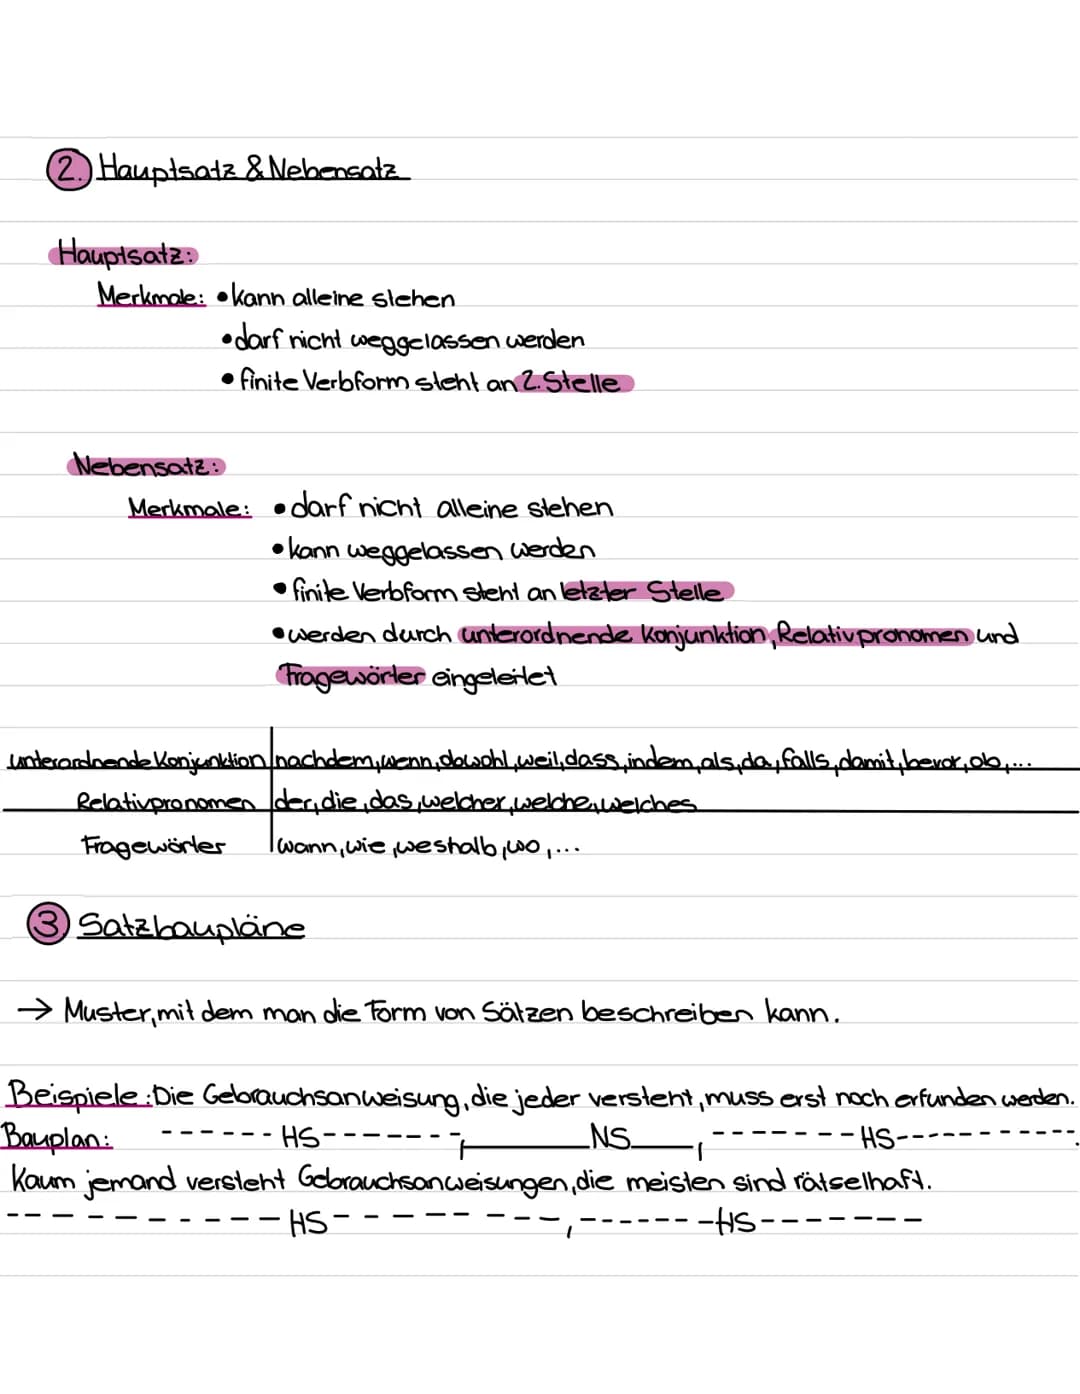 2. Hauptsatz & Nebensatz
Hauptsatz:
Merkmale: • kann alleine stehen
• darf nicht weggelassen werden
• finite Verbform steht an 2. Stelle
Nebensatz:
Merkmale: • darf nicht alleine stehen
• kann weggelassen werden
• finite Verbform steht an letzter Stelle
• werden durch unterordnende Konjunktion, Relativpronomen und
Fragewörter eingeleitet
unterordnende Konjunktion nachdem, wenn, obwohl, weil, dass, indem, als, da, falls, damit, bevor, ob, ...
Relativpronomen der, die, das, welcher, welche, welches
Fragewörter wann, wie, weshalb, wo, ...
3. Satzbaupläne
→ Muster, mit dem man die Form von Sätzen beschreiben kann.
Beispiele: Die Gebrauchsanweisung, die jeder versteht, muss erst noch erfunden werden.
Bauplan: ------ HS -------, ______NS______, ------- HS -----------.
Kaum jemand versteht Gebrauchsanweisungen, die meisten sind rätselhaft.
---------- HS --------, ------- HS -------